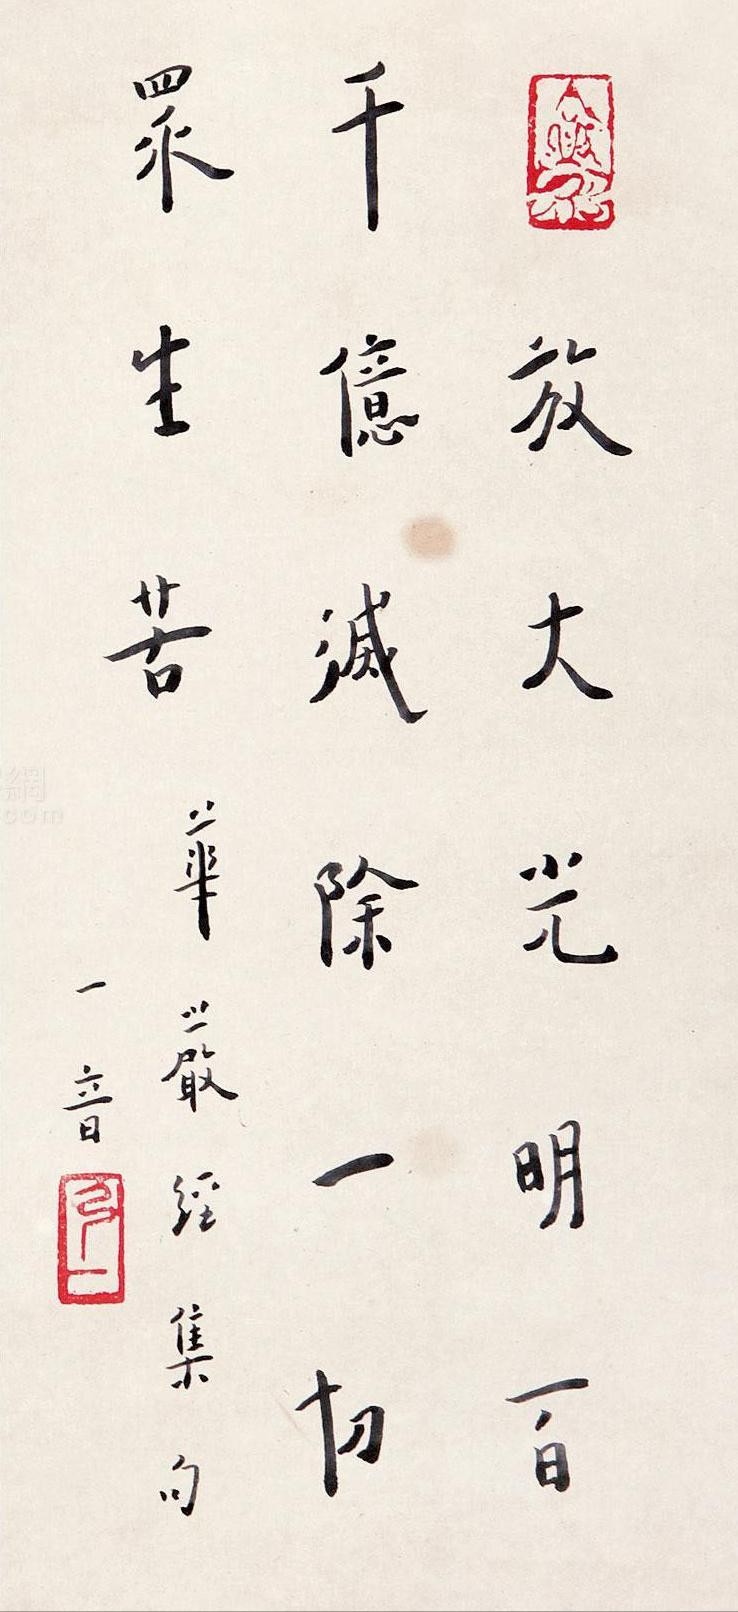 放大光明百
千億滅除一切
眾生苦
華嚴經集句
一音
網
.com